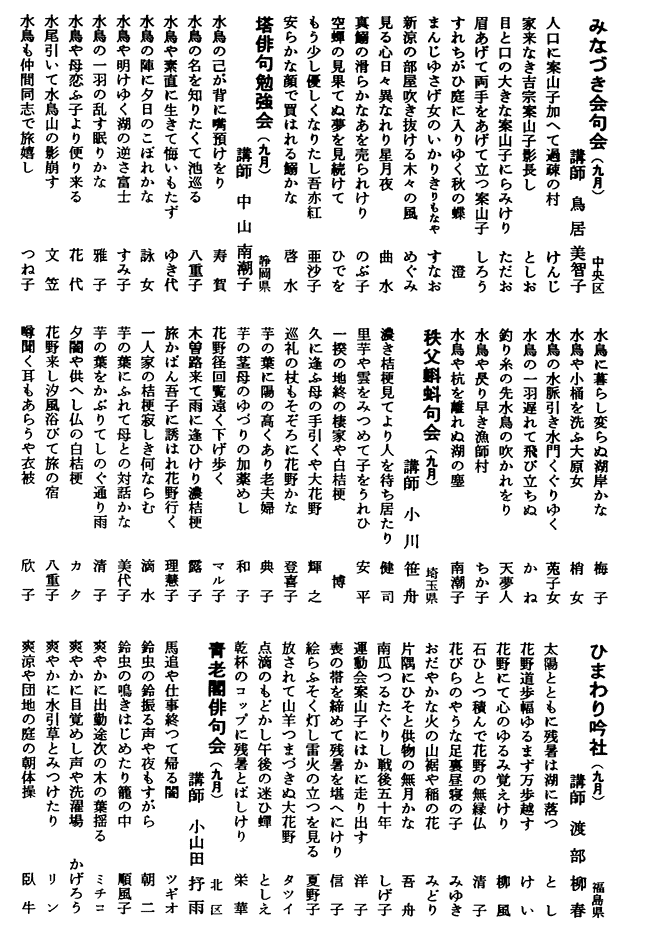 みなづき会句会（九月） 中央区
講師 鳥居美智子
人口に案山子加へて過疎の村 けんじ
家来なき吉宗案山子影長し としお
目と口の大きな案山子にらみけり ただお
眉あげて両手をあげて立つ案山子 しろう
すれちがひ庭に入りゆく秋の蝶 澄
まんじゆさげ女のいかりきりもなや すなお
新涼の部屋吹き抜ける木々の風 めぐみ
見る心日々異なれり星月夜 曲水
真鰯の滑らかなあを売られけり のぶ子
空蟬の見果てぬ夢を見続けて ひでを
もう少し優しくなりたし吾亦紅 亜沙子
安らかな顔で買はれる鰯かな 啓水
塔俳句勉強会（九月） 静岡県
講師 中山南潮子
水鳥の己が背に嘴預けをり 寿賀
水鳥の名を知りたくて池巡る 八重子
水鳥や素直に生きて悔いもたず ゆき代
水鳥の陣に夕日のこぼれかな 詠女
水鳥や明けゆく湖の逆さ富士 すみ子
水鳥の一羽の乱す眠りかな 雅子
水鳥や母恋ふ子より便り来る 花代
水尾引いて水鳥山の影崩す 文笠
水鳥も仲間同志で旅嬉し つね子
水鳥に暮らし変らぬ湖岸かな 梅子
水鳥や小桶を洗ふ大原女 梢女
水鳥の水脈引き水門くぐりゆく 菟子女
水鳥の一羽遅れて飛び立ちぬ かね
釣り糸の先水鳥の吹かれをり 天夢人
水鳥や昃り早き漁師村 ちか子
水鳥や杭を離れぬ湖の塵 南潮子
秩父蝌蚪句会（九月） 埼玉県
講師 小川笹舟
濃き桔梗見てより人を待ち居たり 健司
里芋や雲をみつめて子をうれひ 安平
一揆の地終の棲家や白桔梗 博
久に逢ふ母の手引くや大花野 輝之
巡礼の杖もそぞろに花野かな 登喜子
芋の葉に陽の高くあり老夫婦 典子
芋の茎母のゆづりの加薬めし 和子
花野径回覧遠く下げ歩く マル子
木曽路来て雨に逢ひけり濃桔梗 露子
旅かばん吾子に誘はれ花野行く 理慧子
一人家の桔梗寂しき何ならむ 滴水
芋の葉にふれて母との対話かな 美代子
芋の葉をかぶりてしのぐ通り雨 清子
夕闇や供へし仏の白桔梗 カク
花野来し汐風浴びて旅の宿 八重子
噂聞く耳もあらうや衣被 欣子
ひまわり吟社（九月） 福島県
講師 渡部柳春
太陽とともに残暑は湖に落つ とし
花野道歩幅ゆるまず万歩越す けい
花野にて心のゆるみ覚えけり 柳風
石ひとつ積んで花野の無縁仏 清子
花びらのやうな足裏昼寝の子 みゆき
おだやかな火の山裾や稲の花 みどり
片隅にひそと供物の無月かな 吾舟
南瓜つるたぐりし戦後五十年 しげ子
運動会案山子にはかに走り出す 洋子
喪の帯を締めて残暑を堪へにけり 信子
絵らふそく灯し雷火の立つを見る 夏野子
放されて山羊つまづきぬ大花野 タツイ
点滴のもどかし午後の迷ひ蟬 としえ
乾杯のコップに残暑とばしけり 栄華
青老閣俳句会（九月） 北区
講師 小山田抒雨
馬追や仕事終つて帰る闇 ツギオ
鈴虫の鈴振る声や夜もすがら 朝二
鈴虫の鳴きはじめたり籠の中 順風子
爽やかに出勤途次の木の葉揺る ミチコ
爽やかに目覚めし声や洗濯場 かげろう
爽やかに水引草とみつけたり リン
爽涼や団地の庭の朝体操 臥牛